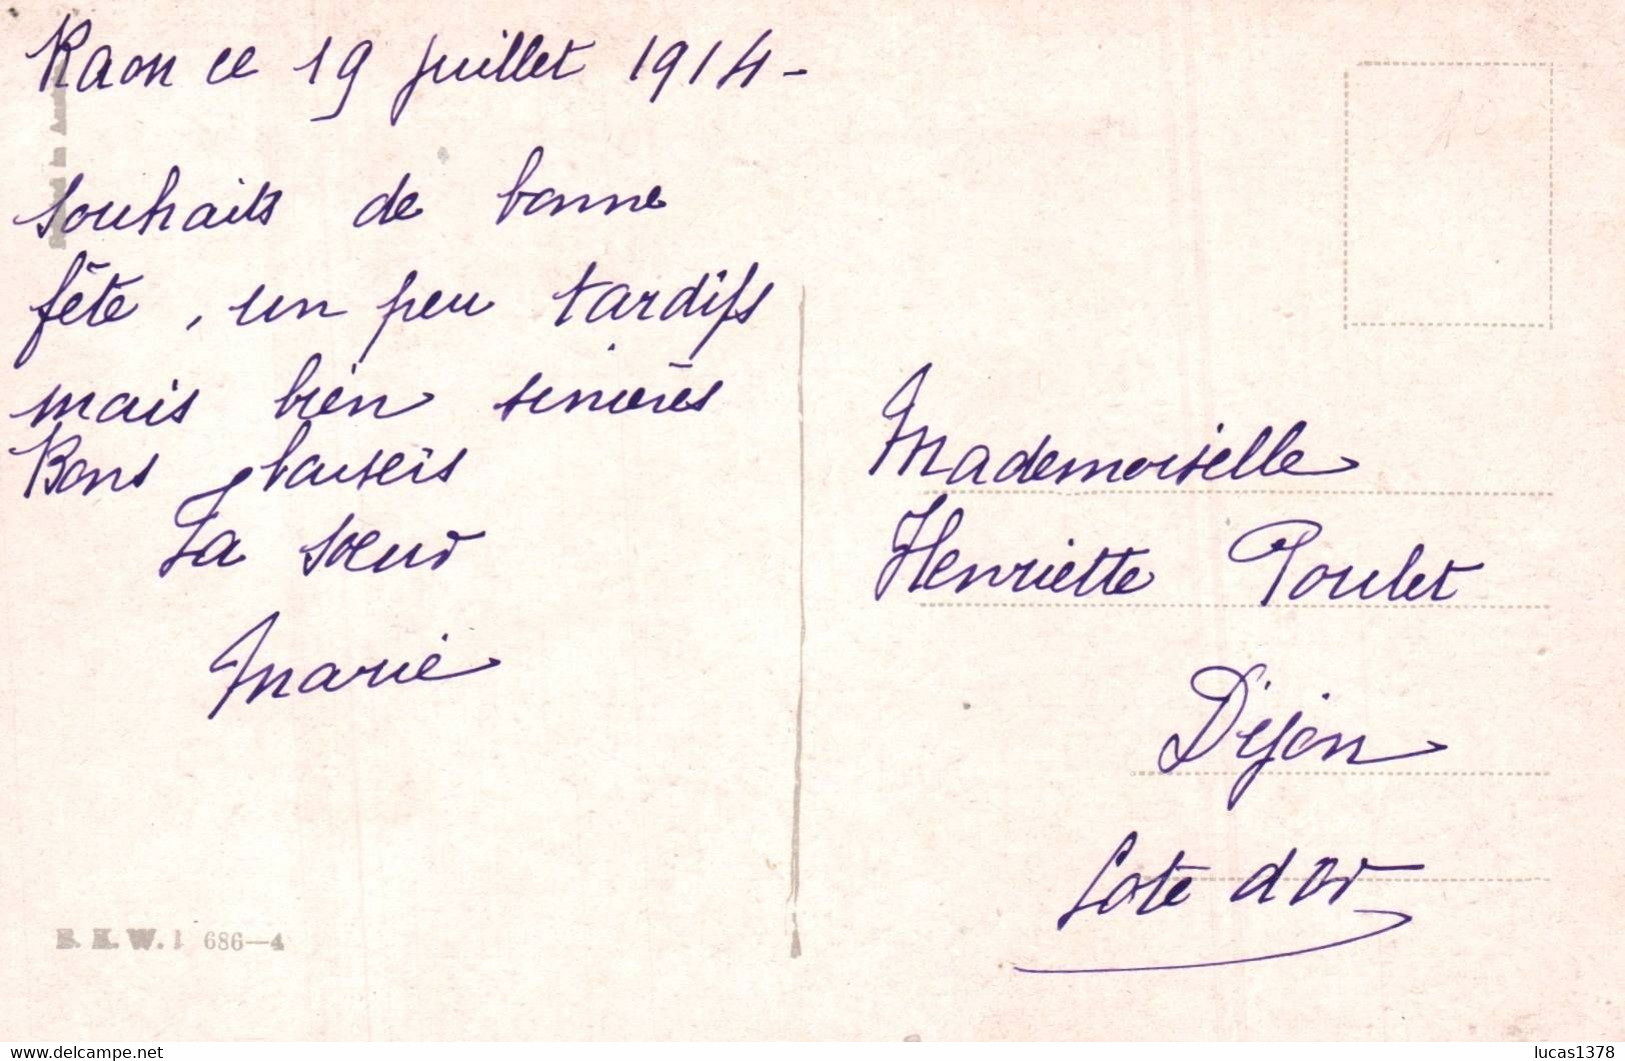 Raon ce 19 juillet 1914 -
souhaits de bonne
fête, un peu tardifs
mais bien sincères
Bons baisers
Ta sœur
Marie
Mademoiselle
Henriette Poulet
Dijon
Cote d'Or
B. K. W. I 686-4
lucas1378